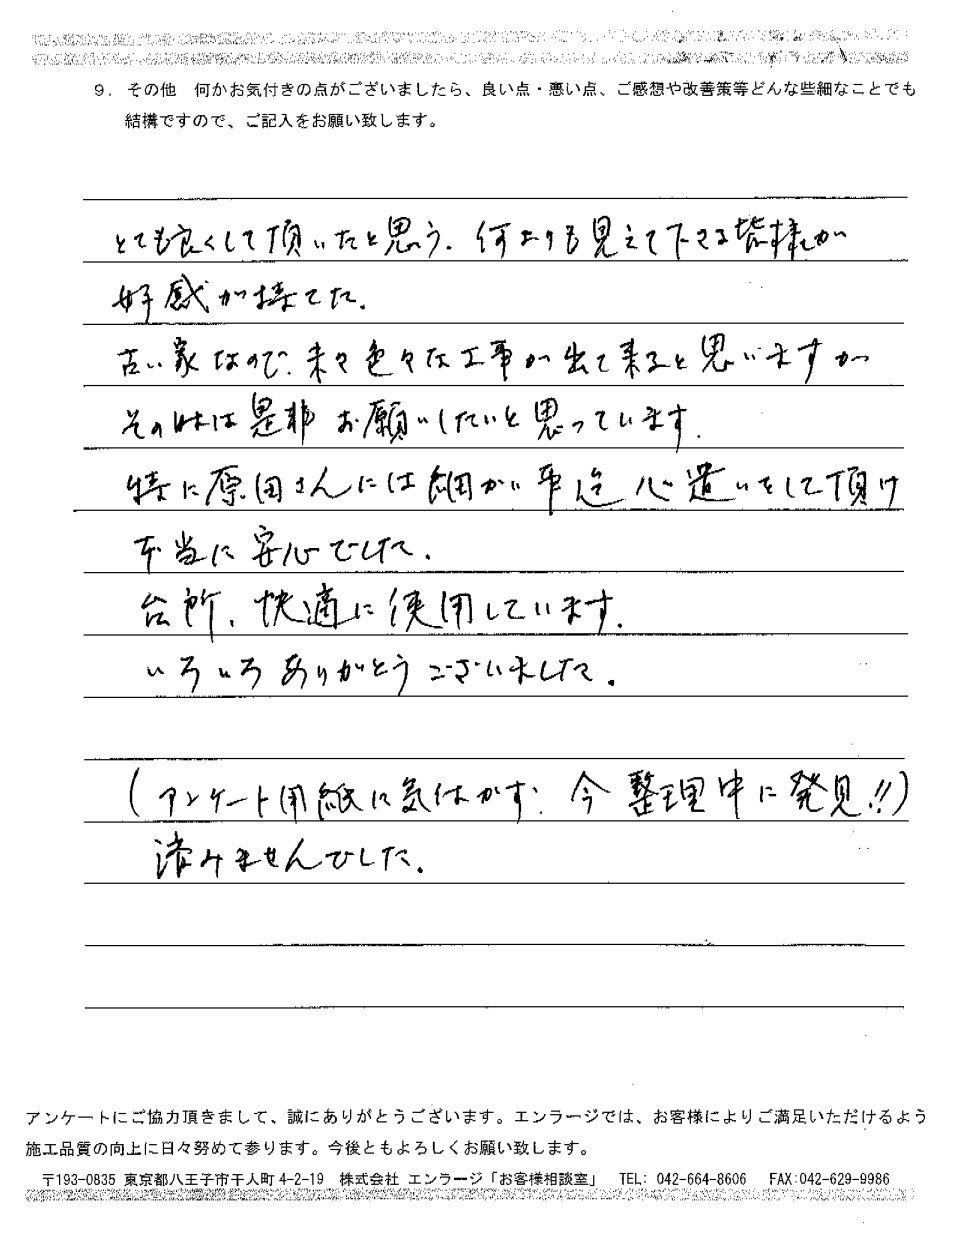 9. その他 何かお気付きの点がございましたら、良い点・悪い点、ご感想や改善策等どんな些細なことでも
結構ですので、ご記入をお願い致します。
とても良くして頂いたと思う. 何よりも見えて下さる皆様が
好感が持てた.
古い家なので、来々色々な工事が出て来ると思いますが
その時は是非お願いしたいと思っています.
特に原田さんには細かい事迄心遣いをして頂け
本当に安心でした.
台所、快適に使用しています.
いろいろありがとうございました.
(アンケート用紙に気付かず、今整理中に発見!!)
済みませんでした.
アンケートにご協力頂きまして、誠にありがとうございます。エンラージでは、お客様によりご満足いただけるよう
施工品質の向上に日々努めて参ります。今後ともよろしくお願い致します。
〒193-0835 東京都八王子市千人町4-2-19 株式会社 エンラージ「お客様相談室」 TEL: 042-664-8606 FAX:042-629-9986